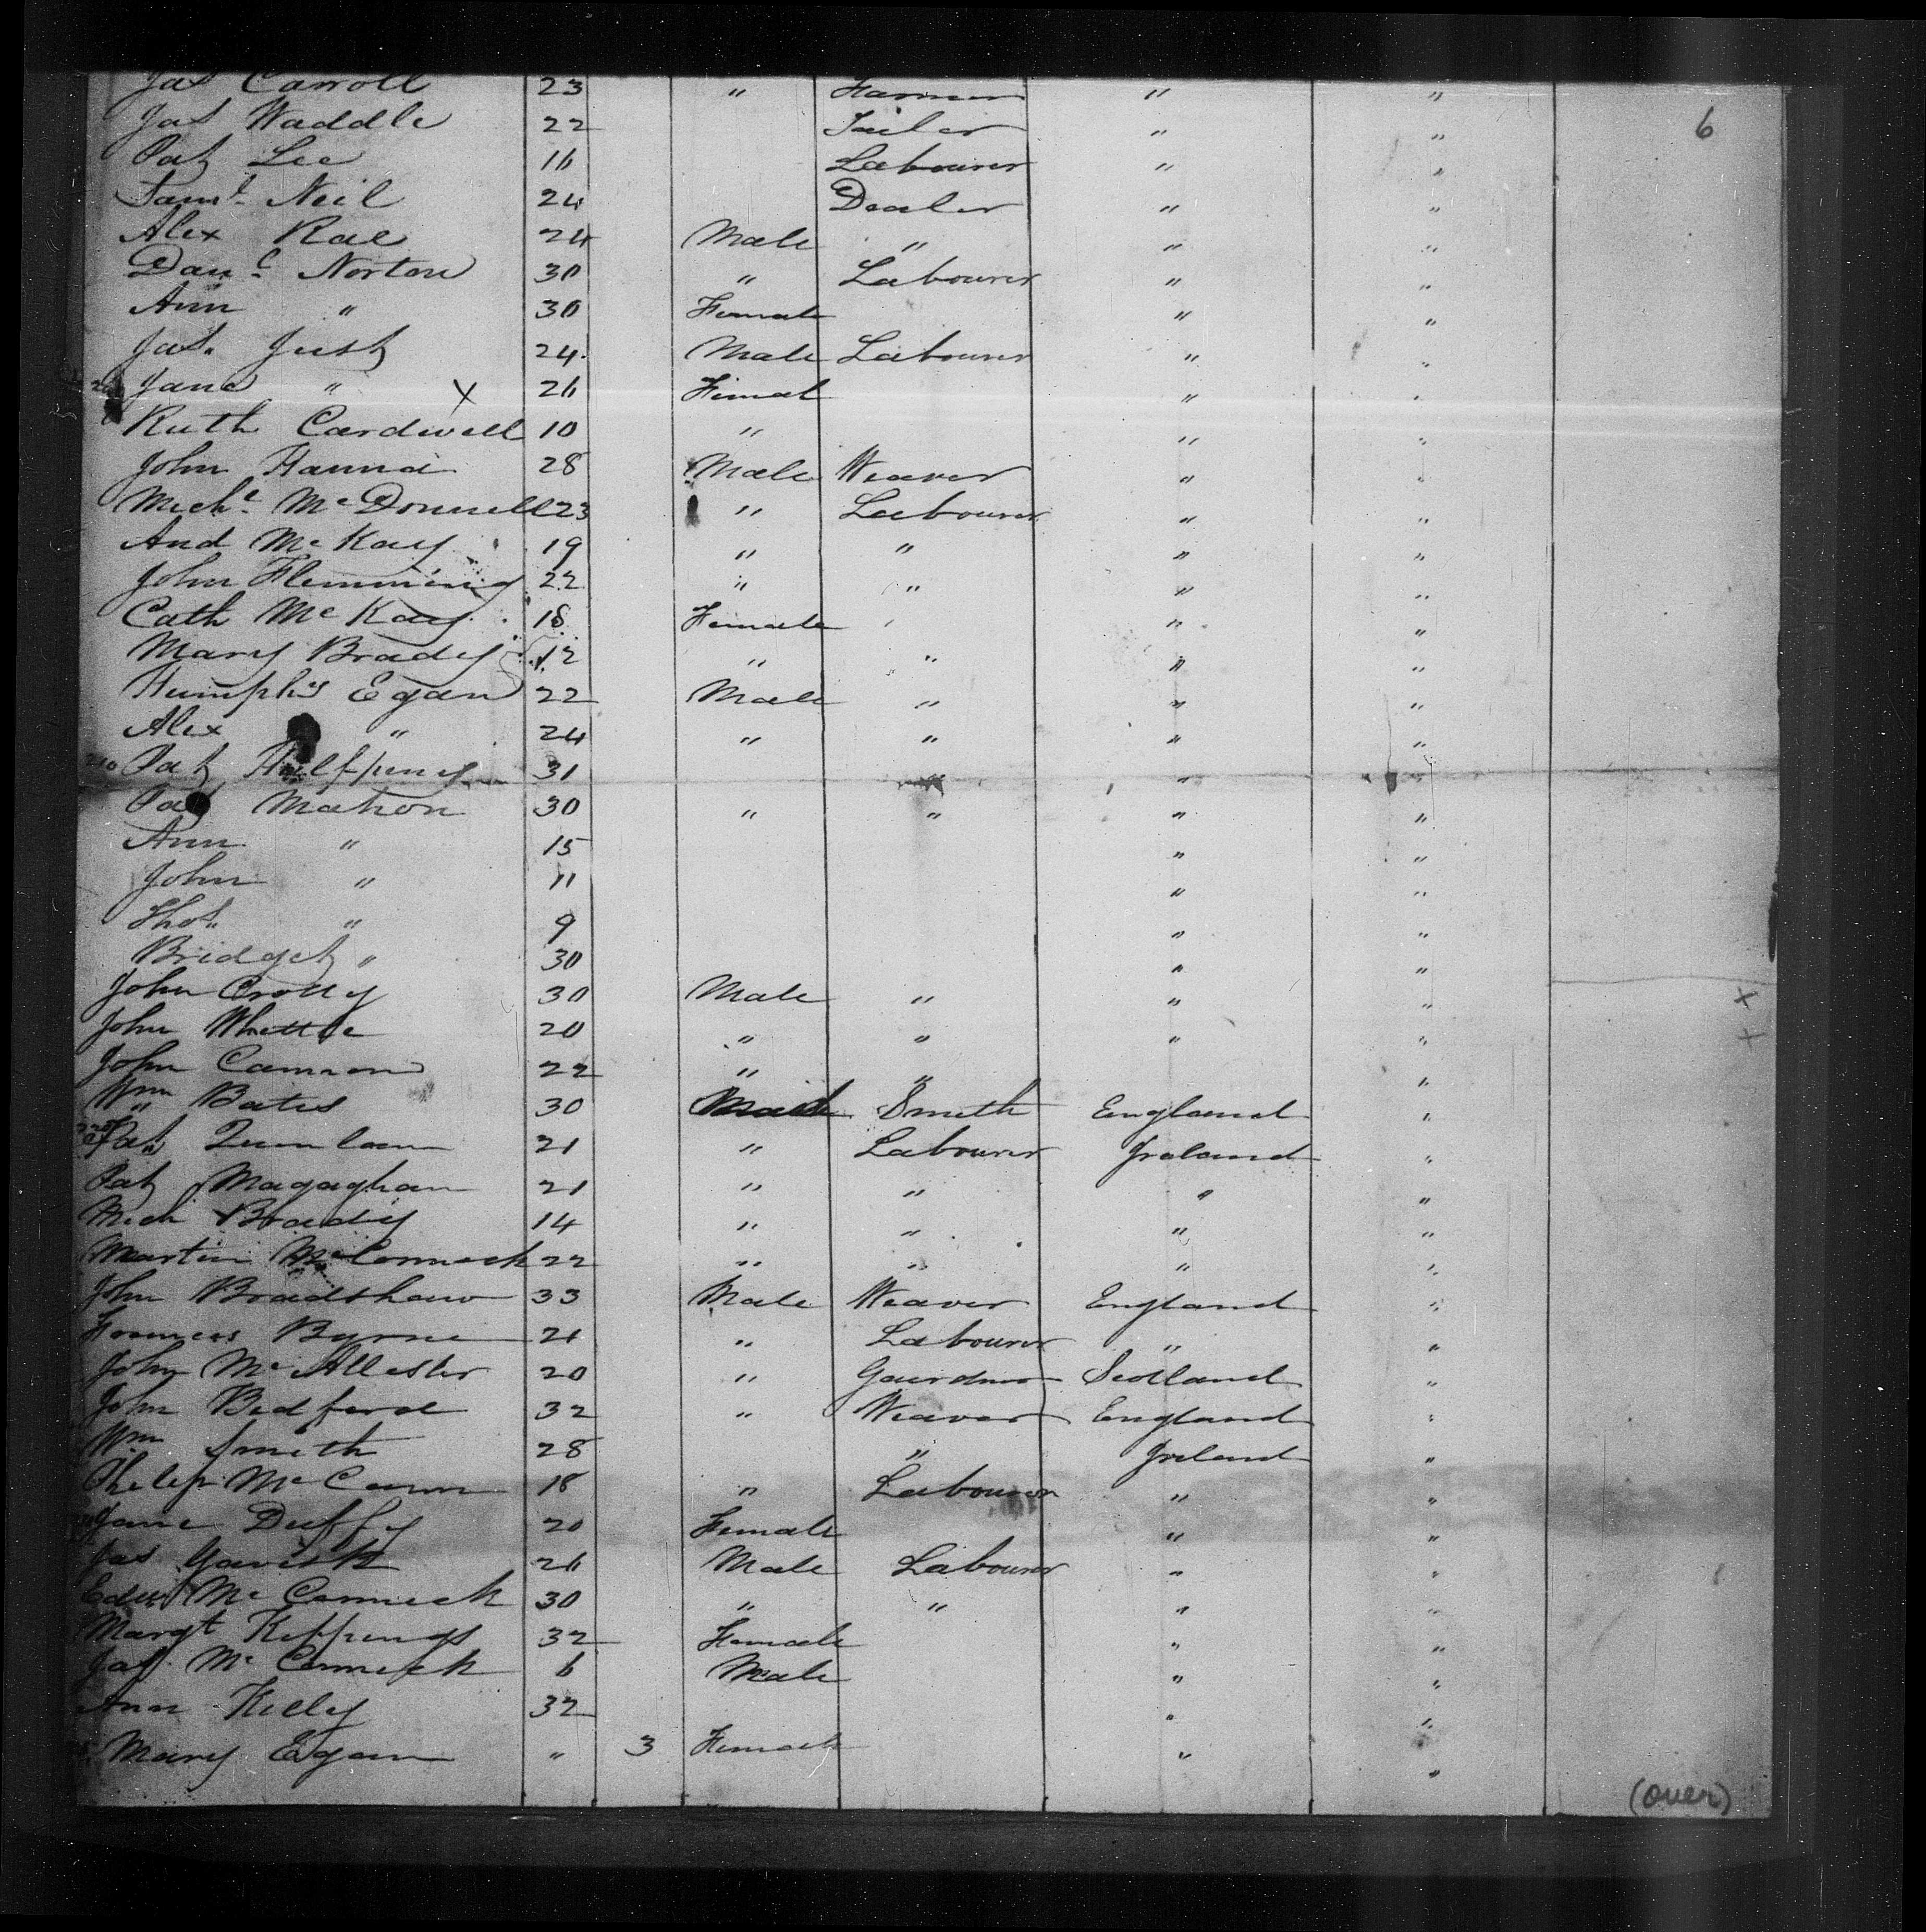 Jas Carroll 23 " Farmer " "
6
Jas Waddle 22 Tailor " "
Pat Lee 16 Labourer " "
Saml. Neil 24 Dealer " "
Alex Rae 24 Male " " "
Danl. Norton 30 " Labourer " "
Ann " 30 Female " "
Jas. Just 24 Male Labourer " "
Jane " X 26 Femal " "
Ruth Cardwell 10 " " "
John Hanna 28 Male Weaver " "
Michl. McDonnell 23 " Labourer " "
And McKay 19 " " " "
John Flemming 22 " " " "
Cath McKay 18 Female " " "
Mary Brady 12 " " " "
Humphs Egan 22 Male " " "
Alex " 24 " " " "
210 Pat Halfpeny 31 " " "
Pat Mahon 30 " " " "
Ann " 15 " "
John " 11 " "
Thos. " 9 " "
Bridget " 30 " "
John Crolly 30 Male " " " X
John Whettle 20 " " " " X
John Camron 22 " " "
Wm Bates 30 Male Smith England "
Pat Quinlan 21 " Labourer Ireland "
Pat Magaghan 21 " " " "
Mich Brady 14 " " " "
Martin McCormack 22 " " " "
John Bradshaw 33 Male Weaver England "
Frances Byrne 21 " Labourer " "
John McAllester 20 " Gaurdner Scotland "
John Bedford 32 " Weaver England "
Wm Smith 28 " Ireland "
Philip McCann 18 " Labourer " "
Jane Duffy 20 Female " "
Jas 26 Male Labourer " "
Edw McCormick 30 " " " "
Margt 32 Female " "
Jas McCormick 6 Male " "
Ann Kelly 32 " "
Mary Egan " 3 Female " "
(over)